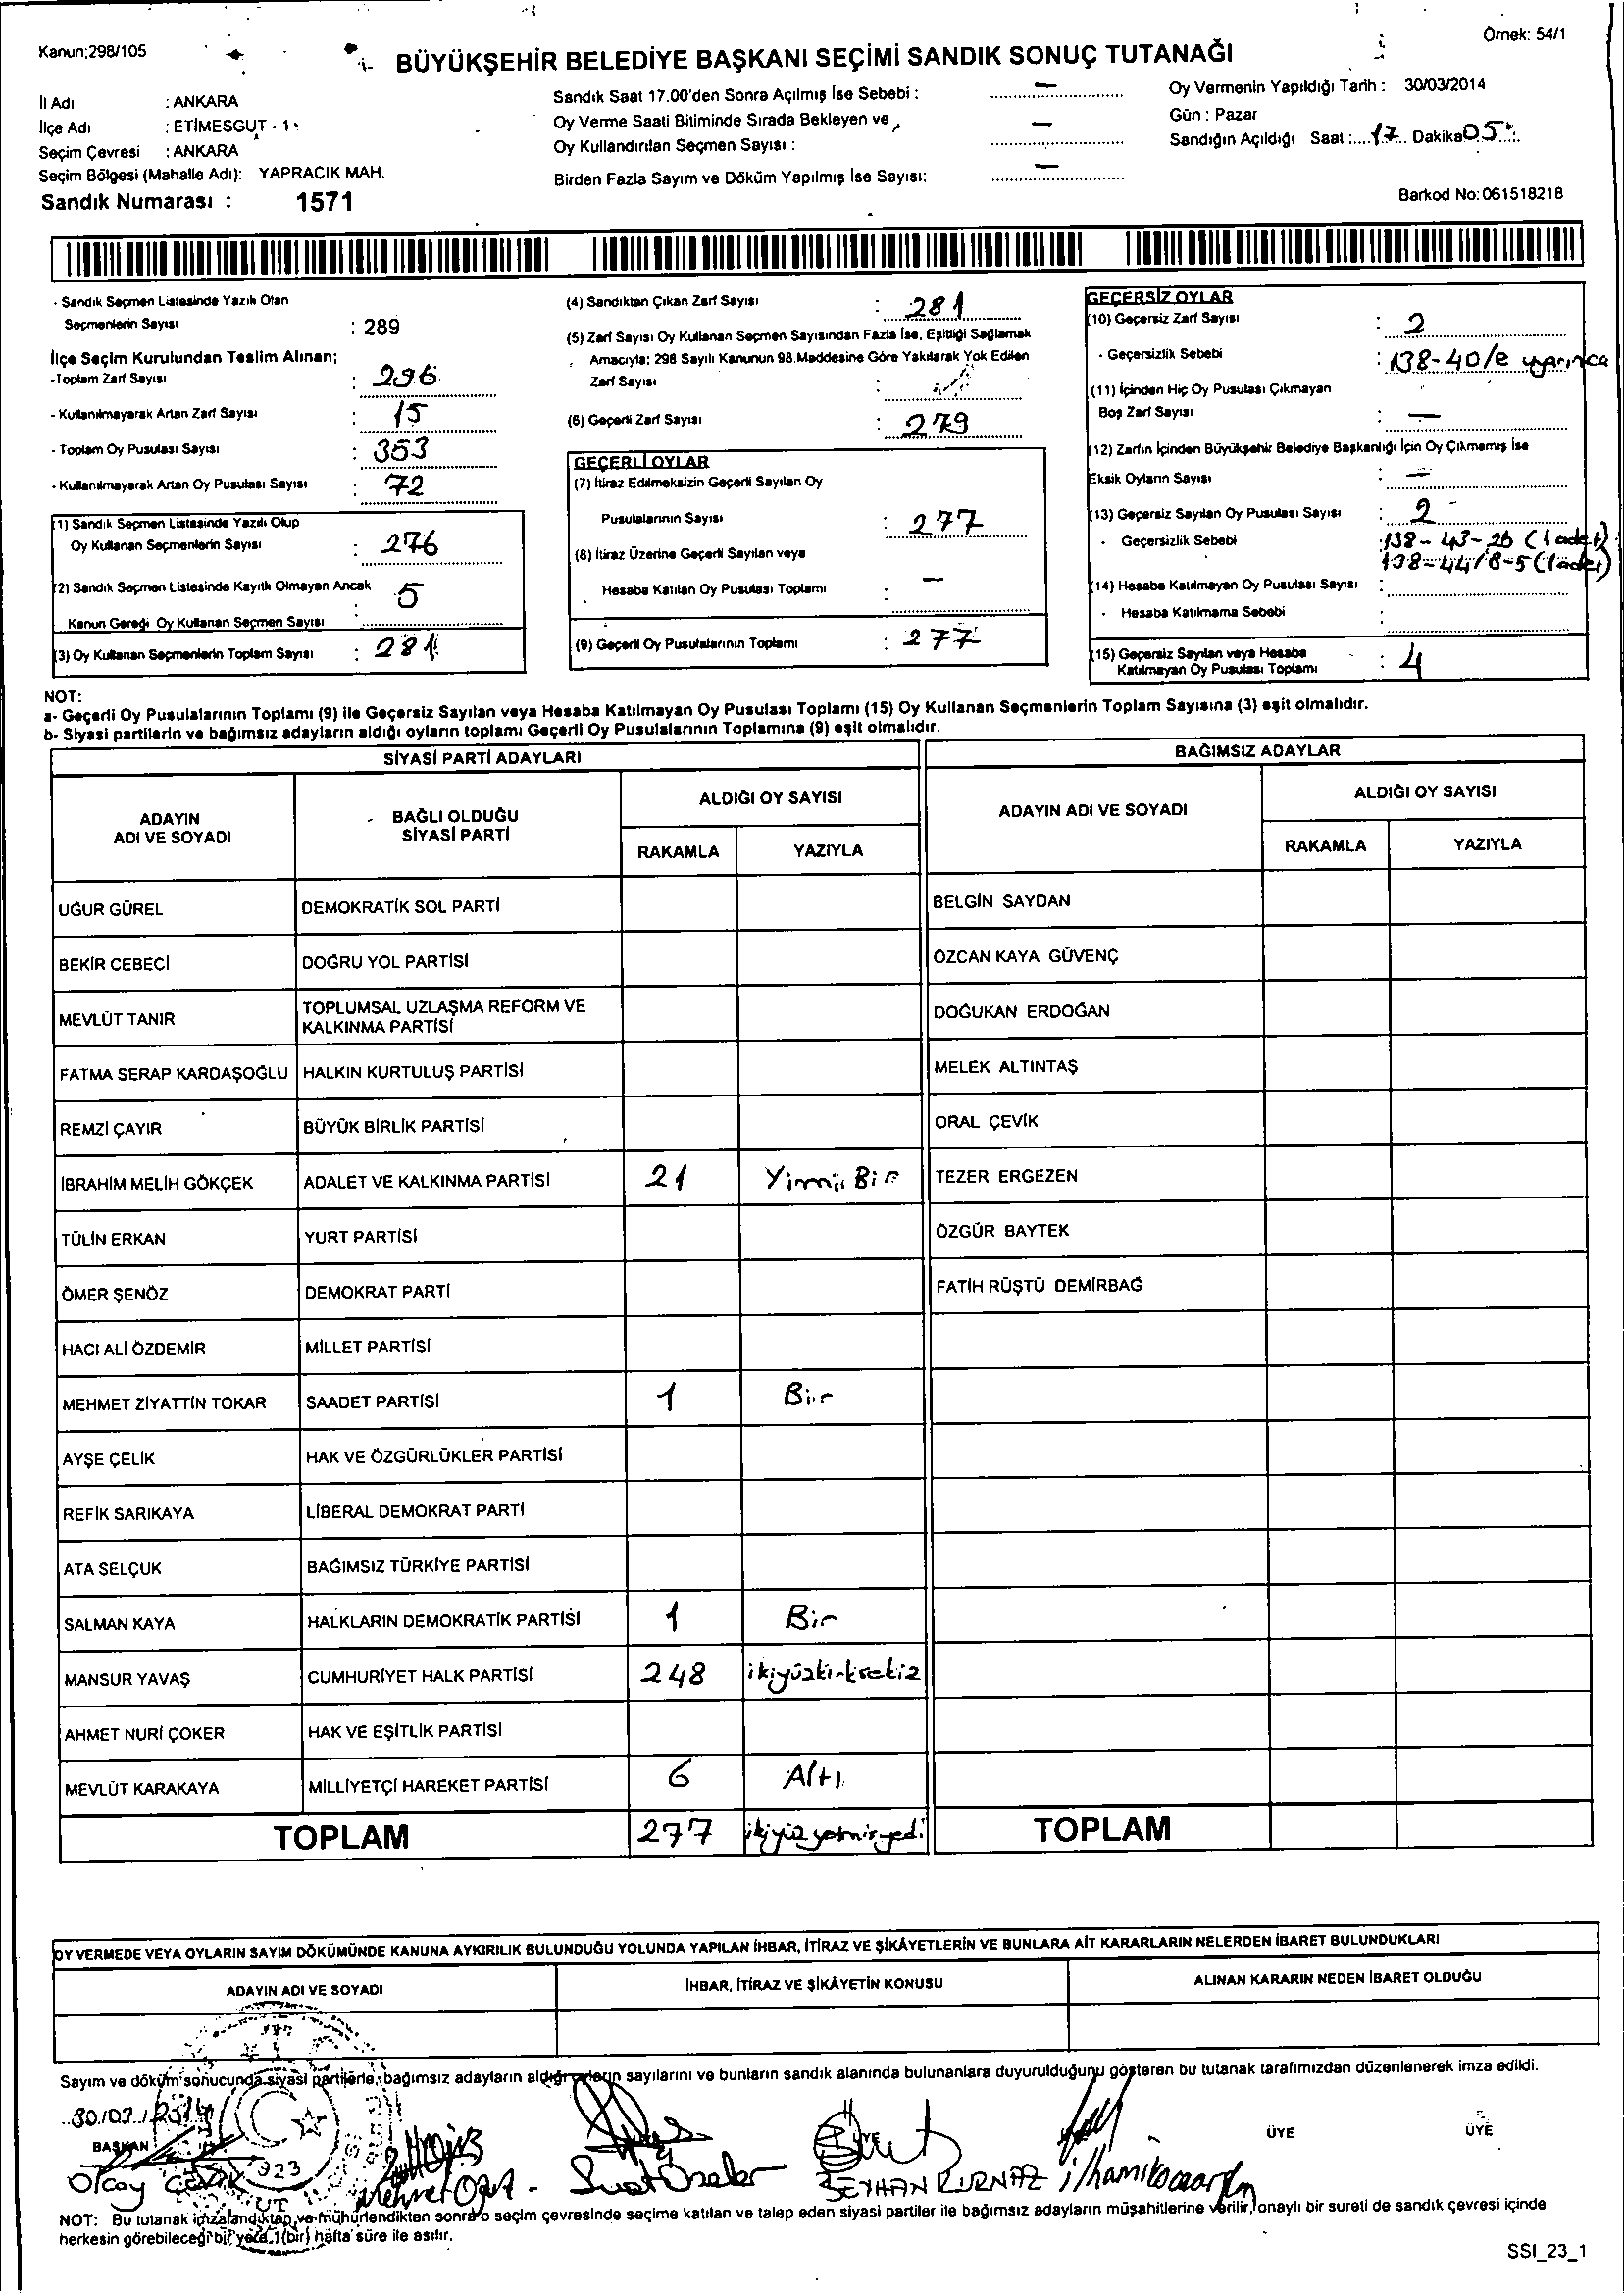 Kanun;298/105
Örnek: 54/1
BÜYÜKŞEHİR BELEDİYE BAŞKANI SEÇİMİ SANDIK SONUÇ TUTANAĞI
İl Adı : ANKARA
İlçe Adı : ETİMESGUT - 1
Seçim Çevresi : ANKARA
Seçim Bölgesi (Mahalle Adı): YAPRACIK MAH.
Sandık Numarası : 1571
Sandık Saat 17.00'den Sonra Açılmış İse Sebebi : —
Oy Verme Saati Bitiminde Sırada Bekleyen ve
Oy Kullandırılan Seçmen Sayısı : —
Birden Fazla Sayım ve Döküm Yapılmış İse Sayısı: —
Oy Vermenin Yapıldığı Tarih : 30/03/2014
Gün : Pazar
Sandığın Açıldığı Saat :....17... Dakika 05
Barkod No:061518218
- Sandık Seçmen Listesinde Yazılı Olan
Seçmenlerin Sayısı : 289
İlçe Seçim Kurulundan Teslim Alınan;
-Toplam Zarf Sayısı : 296
- Kullanılmayarak Artan Zarf Sayısı : 15
- Toplam Oy Pusulası Sayısı : 353
- Kullanılmayarak Artan Oy Pusulası Sayısı : 72
(1) Sandık Seçmen Listesinde Yazılı Olup
Oy Kullanan Seçmenlerin Sayısı : 276
(2) Sandık Seçmen Listesinde Kayıtlı Olmayan Ancak
Kanun Gereği Oy Kullanan Seçmen Sayısı : 5
(3) Oy Kullanan Seçmenlerin Toplam Sayısı : 281
(4) Sandıktan Çıkan Zarf Sayısı : 281
(5) Zarf Sayısı Oy Kullanan Seçmen Sayısından Fazla İse, Eşitliği Sağlamak
Amacıyla; 298 Sayılı Kanunun 98.Maddesine Göre Yakılarak Yok Edilen
Zarf Sayısı :
(6) Geçerli Zarf Sayısı : 279
GEÇERLİ OYLAR
(7) İtiraz Edilmeksizin Geçerli Sayılan Oy
Pusulalarının Sayısı : 277
(8) İtiraz Üzerine Geçerli Sayılan veya
Hesaba Katılan Oy Pusulası Toplamı : —
(9) Geçerli Oy Pusulalarının Toplamı : 277
GEÇERSİZ OYLAR
(10) Geçersiz Zarf Sayısı : 2
- Geçersizlik Sebebi : 138-40/e uyarınca
(11) İçinden Hiç Oy Pusulası Çıkmayan
Boş Zarf Sayısı : —
(12) Zarfın İçinden Büyükşehir Belediye Başkanlığı İçin Oy Çıkmamış İse
Eksik Oyların Sayısı : —
(13) Geçersiz Sayılan Oy Pusulası Sayısı : 2
- Geçersizlik Sebebi : 138-43-2b (1 adet)
138-44/B-5 (1 adet)
(14) Hesaba Katılmayan Oy Pusulası Sayısı :
- Hesaba Katılmama Sebebi :
(15) Geçersiz Sayılan veya Hesaba
Katılmayan Oy Pusulası Toplamı : 4
NOT:
a- Geçerli Oy Pusulalarının Toplamı (9) ile Geçersiz Sayılan veya Hesaba Katılmayan Oy Pusulası Toplamı (15) Oy Kullanan Seçmenlerin Toplam Sayısına (3) eşit olmalıdır.
b- Siyasi partilerin ve bağımsız adayların aldığı oyların toplamı Geçerli Oy Pusulalarının Toplamına (9) eşit olmalıdır.
SİYASİ PARTİ ADAYLARI
BAĞIMSIZ ADAYLAR
ADAYIN
ADI VE SOYADI
BAĞLI OLDUĞU
SİYASİ PARTİ
ALDIĞI OY SAYISI
RAKAMLA YAZIYLA
ADAYIN ADI VE SOYADI
ALDIĞI OY SAYISI
RAKAMLA YAZIYLA
UĞUR GÜREL DEMOKRATİK SOL PARTİ BELGİN SAYDAN
BEKİR CEBECİ DOĞRU YOL PARTİSİ ÖZCAN KAYA GÜVENÇ
MEVLÜT TANIR TOPLUMSAL UZLAŞMA REFORM VE
KALKINMA PARTİSİ DOĞUKAN ERDOĞAN
FATMA SERAP KARDAŞOĞLU HALKIN KURTULUŞ PARTİSİ MELEK ALTINTAŞ
REMZİ ÇAYIR BÜYÜK BİRLİK PARTİSİ ORAL ÇEVİK
İBRAHİM MELİH GÖKÇEK ADALET VE KALKINMA PARTİSİ 21 Yirmi Bir TEZER ERGEZEN
TÜLİN ERKAN YURT PARTİSİ ÖZGÜR BAYTEK
ÖMER ŞENÖZ DEMOKRAT PARTİ FATİH RÜŞTÜ DEMİRBAĞ
HACI ALİ ÖZDEMİR MİLLET PARTİSİ
MEHMET ZİYATTİN TOKAR SAADET PARTİSİ 1 Bir
AYŞE ÇELİK HAK VE ÖZGÜRLÜKLER PARTİSİ
REFİK SARIKAYA LİBERAL DEMOKRAT PARTİ
ATA SELÇUK BAĞIMSIZ TÜRKİYE PARTİSİ
SALMAN KAYA HALKLARIN DEMOKRATİK PARTİSİ 1 Bir
MANSUR YAVAŞ CUMHURİYET HALK PARTİSİ 248 ikiyüzkırksekiz
AHMET NURİ ÇOKER HAK VE EŞİTLİK PARTİSİ
MEVLÜT KARAKAYA MİLLİYETÇİ HAREKET PARTİSİ 6 Altı
TOPLAM 277 ikiyüz yetmişyedi TOPLAM
OY VERMEDE VEYA OYLARIN SAYIM DÖKÜMÜNDE KANUNA AYKIRILIK BULUNDUĞU YOLUNDA YAPILAN İHBAR, İTİRAZ VE ŞİKÂYETLERİN VE BUNLARA AİT KARARLARIN NELERDEN İBARET BULUNDUKLARI
ADAYIN ADI VE SOYADI İHBAR, İTİRAZ VE ŞİKÂYETİN KONUSU ALINAN KARARIN NEDEN İBARET OLDUĞU
Sayım ve döküm sonucunda siyasi partilerle, bağımsız adayların aldığı oyların sayılarını ve bunların sandık alanında bulunanlara duyurulduğunu gösteren bu tutanak tarafımızdan düzenlenerek imza edildi.
30/03/2014
BAŞKAN ÜYE ÜYE ÜYE
Olcay Mehmet Oğuz Suat Önaler SEYHAN KURNAZ
NOT: Bu tutanak imzalandıktan ve mühürlendikten sonra o seçim çevresinde seçime katılan ve talep eden siyasi partiler ile bağımsız adayların müşahitlerine verilir, onaylı bir sureti de sandık çevresi içinde
herkesin görebileceği bir yere 1(bir) hafta süre ile asılır.
SSI_23_1